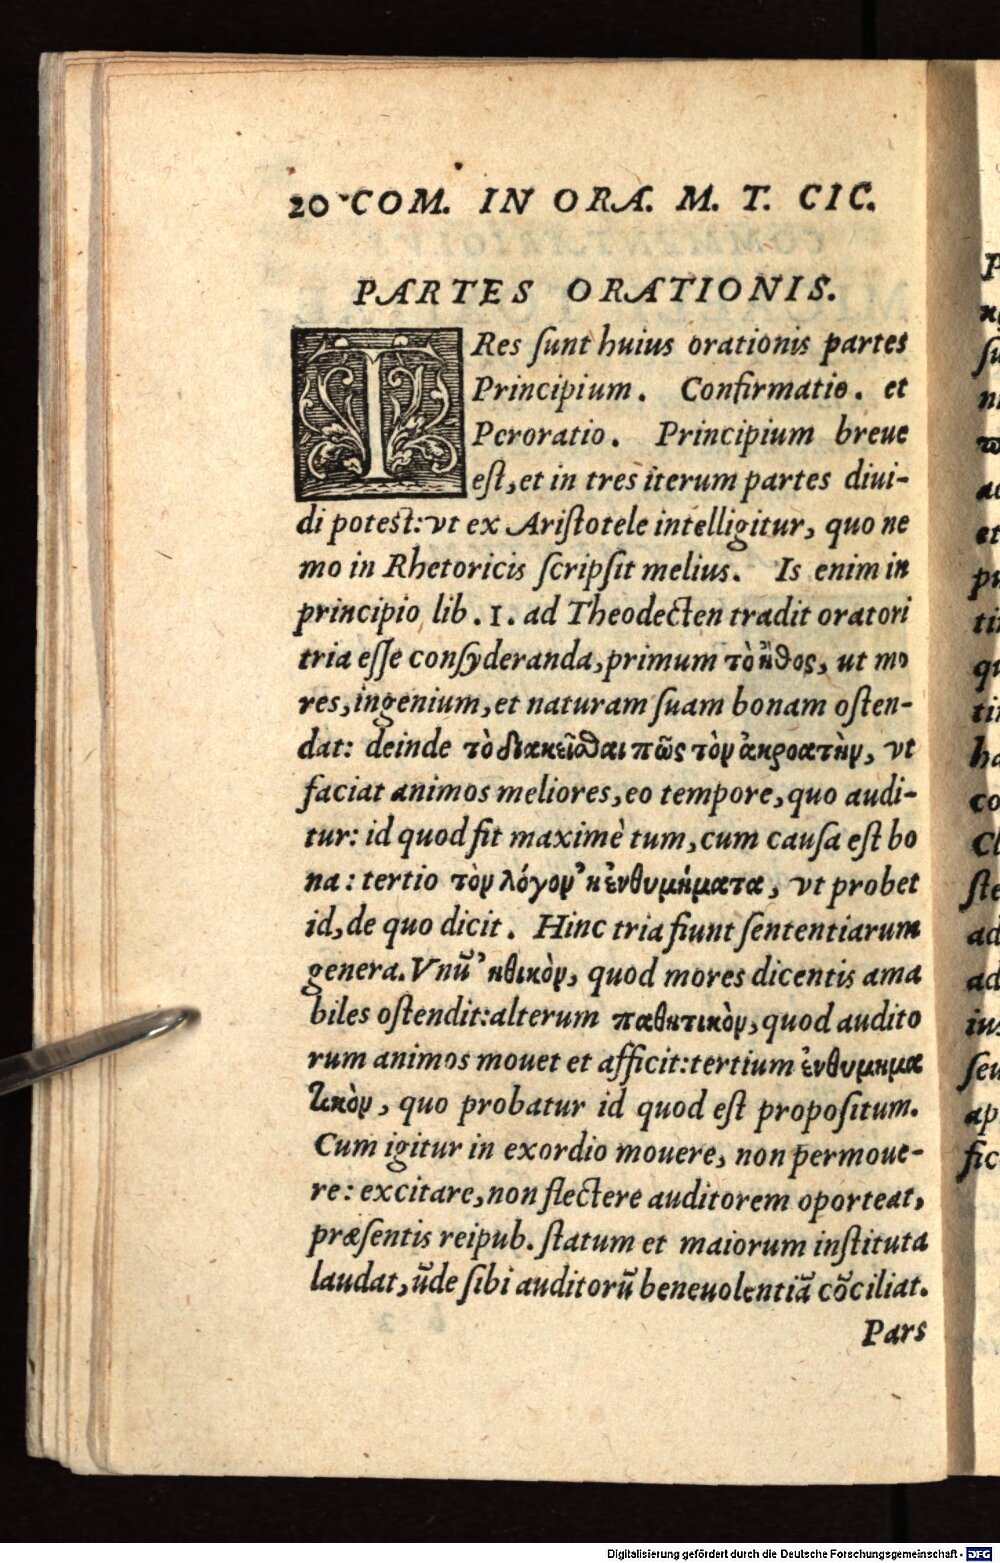 20 COM. IN ORA. M. T. CIC.
PARTES ORATIONIS.
TRes ſunt huius orationis partes
Principium. Confirmatio. et
Peroratio. Principium breue
eſt, et in tres iterum partes diui-
di poteſt: vt ex Ariſtotele intelligitur, quo ne
mo in Rhetoricis ſcripſit melius. Is enim in
principio lib. 1. ad Theodecten tradit oratori
tria eſſe conſyderanda, primum τὸ ἦθος, ut mo
res, ingenium, et naturam ſuam bonam oſten-
dat: deinde τὸ διακεῖσθαι πῶς τὸν ἀκροατὴν, vt
faciat animos meliores, eo tempore, quo audi-
tur: id quod fit maximè tum, cum cauſa eſt bo
na: tertio τὸν λόγον ἢ ἐνθυμήματα, vt probet
id, de quo dicit. Hinc tria fiunt ſententiarum
genera. Vnũ ἠθικὸν, quod mores dicentis ama
biles oſtendit: alterum παθητικὸν, quod audito
rum animos mouet et afficit: tertium ἐνθυμημα
τικὸν, quo probatur id quod eſt propoſitum.
Cum igitur in exordio mouere, non permoue-
re: excitare, non flectere auditorem oporteat,
præſentis reipub. ſtatum et maiorum inſtituta
laudat, ũde ſibi auditorũ beneuolentiã cõciliat.
Pars
Digitalisierung gefördert durch die Deutsche Forschungsgemeinschaft - DFG